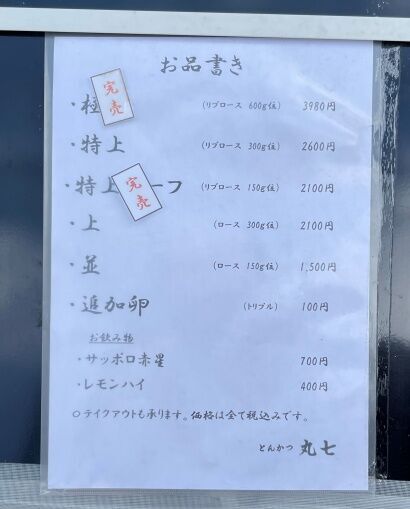 お品書き
・極 完売 (リブロース 600g位) 3980円
・特上 (リブロース 300g位) 2600円
・特上 完売 ーフ (リブロース 150g位) 2100円
・上 (ロース 300g位) 2100円
・並 (ロース 150g位) 1,500円
・追加卵 (トリプル) 100円
お飲み物
・サッポロ赤星 700円
・レモンハイ 400円
○テイクアウトも承ります。価格は全て税込みです。
とんかつ 丸七